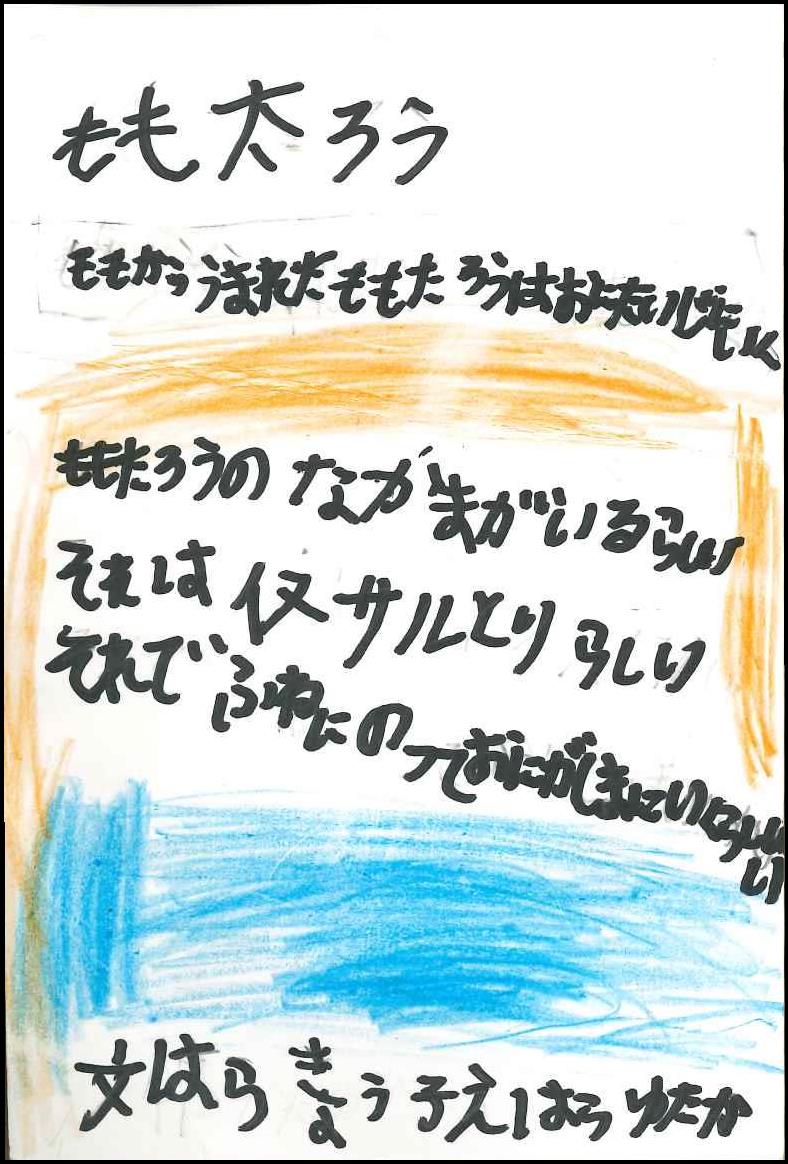 もも太ろう
ももからうまれたももたろうはおにたいじに
ももたろうのなかまがいるらしい
それは イヌサルとりらしい
それでふねにのっておにがしまにいくらしい
文はらきょう子えはらゆたか